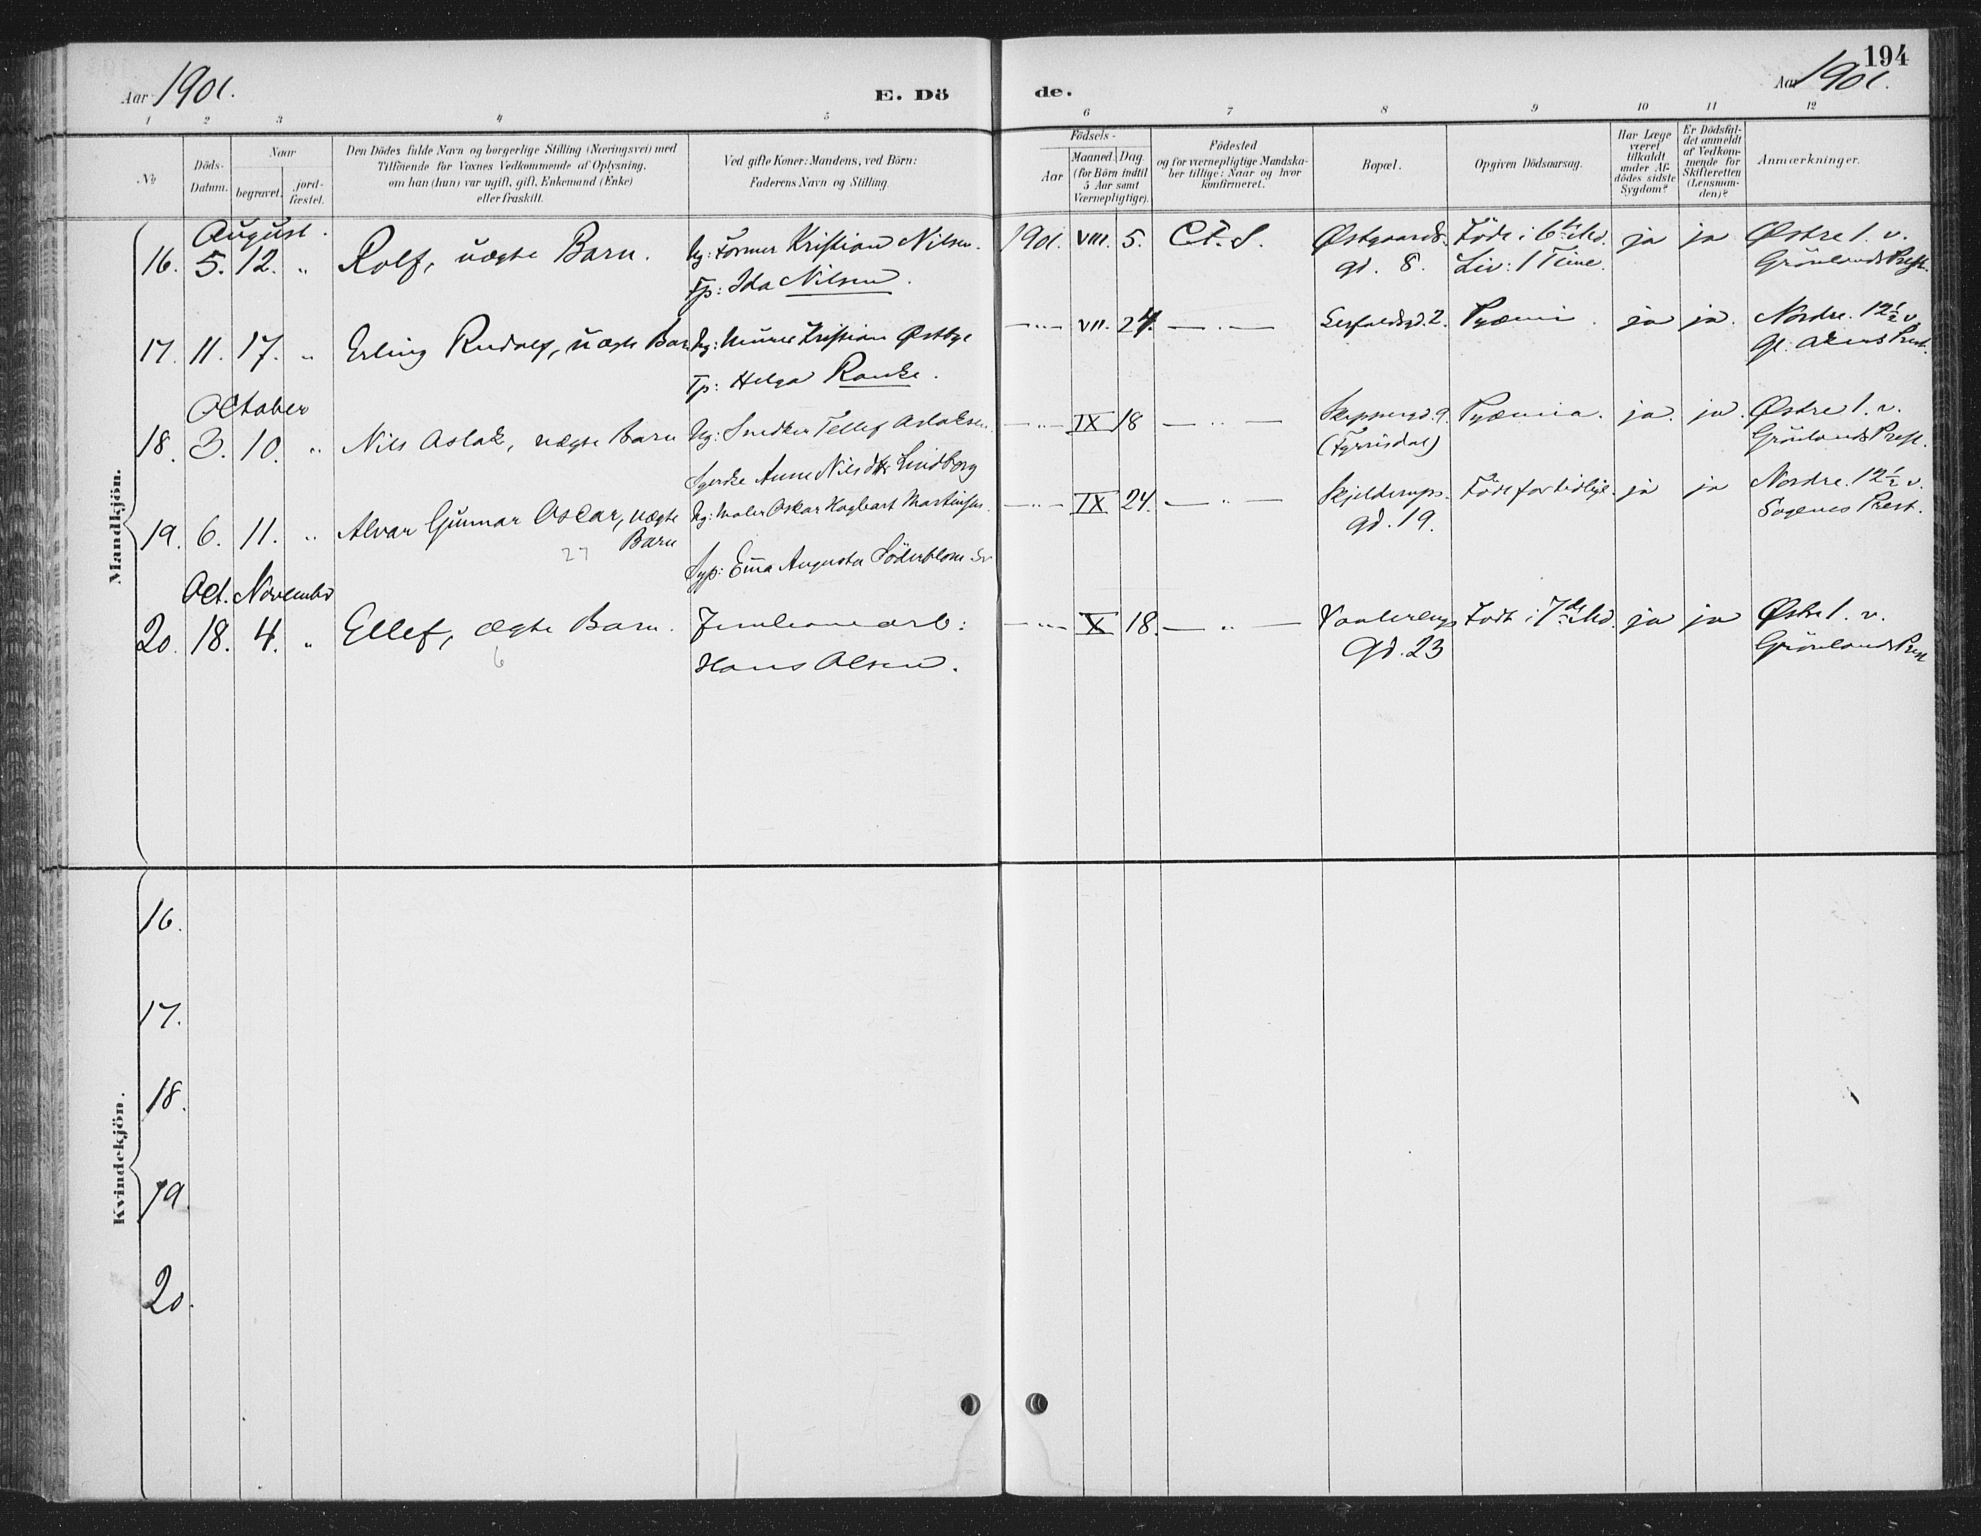 194
Aar 1901.
E. Dö
de.
Aar 1901.
1 2 3 4 5 6 7 8 9 10 11 12
No
Döds-
Datum.
Naar
begravet.
jord-
fæstet.
Den Dödes fulde Navn og borgerlige Stilling (Næringsvei) med
Tilföiende for Voxnes Vedkommende af Oplysning,
om han (hun) var ugift, gift, Enkemand (Enke)
eller fraskilt.
Ved gifte Koner: Mandens, ved Börn:
Faderens Navn og Stilling.
Födsels-
Aar
Maaned. Dag.
(for Börn indtil
5 Aar samt
Værnepligtige).
Födested
og for værnepligtige Mandska-
ber tillige: Naar og hvor
konfirmeret.
Bopæl.
Opgiven Dödsaarsag.
Har Læge
været
tilkaldt
under Af-
dödes sidste
Sygdom?
Er Dödsfal-
det anmeldt
af Vedkom-
mende for
Skifteretten
(Lensman-
den)?
Anmærkninger.
Mandkjön.
August.
16. 5. 12. " Rolf, uægte Barn. Ug: Former Kristian Nilsen. 1901. VIII. 5. Østgaards- Født i 6te Md. ja ja Østre 1. v.
Fp: Ida Nilsen. gd. 8. Liv: 1 Time. Grönlands Prest.
17. 11. 17. " Erling Rudolf, uægte Barn Ug: Murer Kristian Østbye —"— VII. 24. —"— 2. Pyæmi. ja ja. Nordre. 12½ v.
Fp: Helga Ranke. Gl: Akers Prest.
October
18. 3. 10. " Nils Aslak, uægte Barn Ug: Snedker Tellef Aslaksen. —"— IX 18 —"— Skippergd. 9. Pyæmia. ja. ja. Østre 1. v.
Syerske Anne Nilsdtr Lindborg (Fyrrisdal) Grönlands Prest.
19. 6. 11. " Alvar Gunnar Oscar, uægte Ug: Maler Oskar Hagbart Martinsen. —"— IX 24. —"— Skjelderups- Födt for tidlig. ja ja Nordre. 12½ v.
Barn
27
gd. 19. Sagenes Prest.
Syp: Ema Augusta Söderblom
Oct. November
20. 18. 4. " Ellef, ægte Barn. Jernbanearb: —"— X 18. —"— Vaalereng- Födt i 7de Md. ja ja Østre 1. v.
6
Hans Olsen. gd. 23 Grönlands Prest
Kvindekjön.
16.
17.
18.
19.
20.